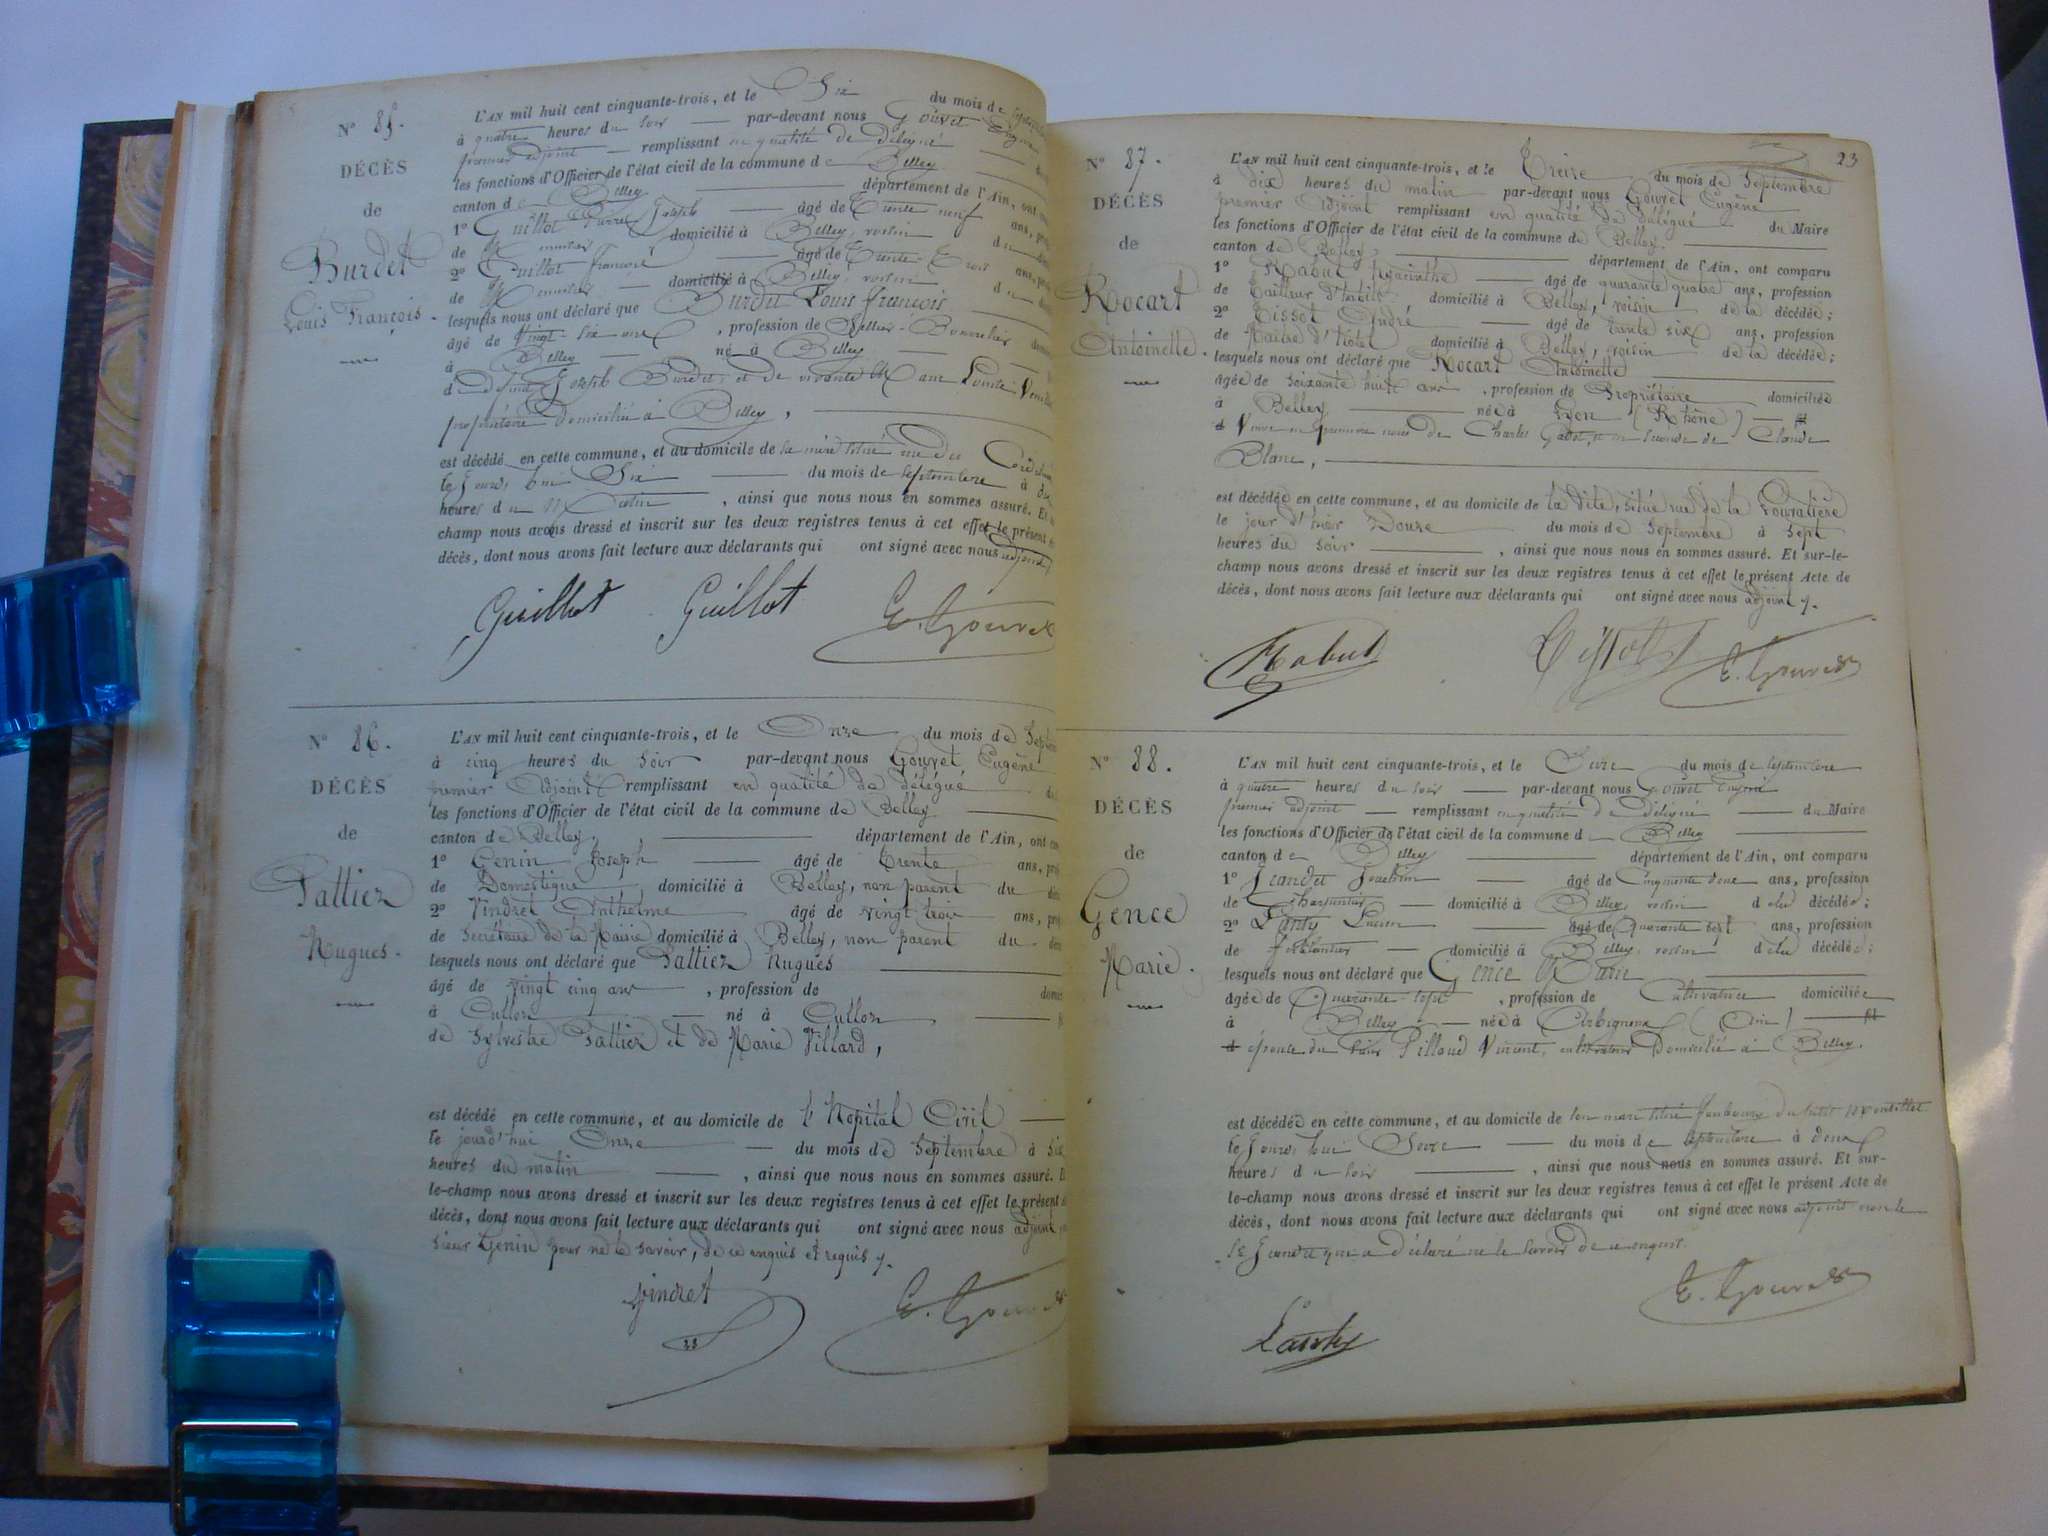 N° 85.
DÉCÈS
de
Burdet
Louis François.
L'AN mil huit cent cinquante-trois, et le Six du mois de
à quatre heures du soir par-devant nous Gouvet
premier adjoint remplissant en qualité de délégué
les fonctions d'Officier de l'état civil de la commune de Belley
canton de Belley département de l'Ain, ont
1° Guillot Pierre Joseph âgé de Trente neuf ans,
de domicilié à Belley, voisin du
2° Guillot François âgé de Trente-Trois ans,
de domicilié à Belley, voisin du
lesquels nous ont déclaré que Burdet Louis François
âgé de Vingt-six ans, profession de Sellier-Bourrelier
à Belley né à Belley
de défunt Joseph Burdet, et de vivante
propriétaire domiciliée à Belley,
est décédé en cette commune, et au domicile de sa mère situé rue des
le jourd'hui Six du mois de septembre à
heures du Matin, ainsi que nous nous en sommes assuré. Et
champ nous avons dressé et inscrit sur les deux registres tenus à cet effet le présent
décès, dont nous avons fait lecture aux déclarants qui ont signé avec nous adjoint
Guillot Guillot E. Gouvet
N° 86.
DÉCÈS
de
Palliez
Hugues.
L'AN mil huit cent cinquante-trois, et le Onze du mois de
à cinq heures du soir par-devant nous Gouvet Eugène
premier Adjoint remplissant en qualité de délégué
les fonctions d'Officier de l'état civil de la commune de Belley
canton de Belley, département de l'Ain, ont
1° Genin Joseph âgé de Trente ans,
de Domestique, domicilié à Belley, non parent du
2° Vindret Anthelme âgé de vingt trois ans,
de Secrétaire de la Mairie domicilié à Belley, non parent du
lesquels nous ont déclaré que Palliez Hugues
âgé de vingt cinq ans, profession de
à Culloz né à Culloz,
de Sylvestre Palliez et de Marie Villard,
est décédé en cette commune, et au domicile de l'Hopital Civil
le jourd'hui Onze du mois de Septembre à
heures du matin, ainsi que nous nous en sommes assuré.
le-champ nous avons dressé et inscrit sur les deux registres tenus à cet effet le présent
décès, dont nous avons fait lecture aux déclarants qui ont signé avec nous adjoint
sieur Genin pour ne le savoir, de ce enquis et requis
Vindret E. Gouvet
23
N° 87.
DÉCÈS
de
Rocart
Antoinette.
L'AN mil huit cent cinquante-trois, et le Treize du mois de Septembre
à dix heures du matin par-devant nous Gouvet Eugène
premier Adjoint remplissant en qualité de délégué du Maire
les fonctions d'Officier de l'état civil de la commune de Belley.
canton de Belley, département de l'Ain, ont comparu
1° Rabut Hyacinthe âgé de quarante quatre ans, profession
de Tailleur d'habits, domicilié à Belley, voisin de la décédée;
2° Tissot André âgé de trente six ans, profession
de Maitre d'hotel domicilié à Belley, voisin de la décédée;
lesquels nous ont déclaré que Rocart Antoinette
âgée de soixante huit ans, profession de Propriétaire domiciliée
à Belley, née à Lyon (Rhône)
Veuve en premières noces de Charles Gabet, et en seconde de Claude
Blanc,
est décédée en cette commune, et au domicile de la dite, situé rue de la
le jour d'hier Douze du mois de Septembre à Sept
heures du soir, ainsi que nous nous en sommes assuré. Et sur-le-
champ nous avons dressé et inscrit sur les deux registres tenus à cet effet le présent Acte de
décès, dont nous avons fait lecture aux déclarants qui ont signé avec nous adjoint
Rabut Tissot E. Gouvet
N° 88.
DÉCÈS
de
Gence
Marie.
L'AN mil huit cent cinquante-trois, et le Seize du mois de septembre
à quatre heures du soir par-devant nous Gouvet Eugène
premier adjoint remplissant en qualité de délégué du Maire
les fonctions d'Officier de l'état civil de la commune de Belley
canton de Belley département de l'Ain, ont comparu
1° Jeandet Joachim âgé de Cinquante deux ans, profession
de Charpentier domicilié à Belley, voisin de la décédée;
2° âgé de Quarante sept ans, profession
de Ferblantier domicilié à Belley, voisin de la décédée;
lesquels nous ont déclaré que Gence Marie
âgée de Quarante-sept, profession de Cultivatrice domiciliée
à Belley, née à Arbignieu (Ain)
épouse du sieur Pilloud Vincent, cultivateur Domicilié à Belley.
est décédée en cette commune, et au domicile de son mari situé faubourg du petit
le jourd'hui Seize du mois de septembre à deux
heures du soir, ainsi que nous nous en sommes assuré. Et sur-
le-champ nous avons dressé et inscrit sur les deux registres tenus à cet effet le présent Acte de
décès, dont nous avons fait lecture aux déclarants qui ont signé avec nous adjoint non le
Sr Jeandet qui a déclaré ne le savoir de ce enquis.
E. Gouvet